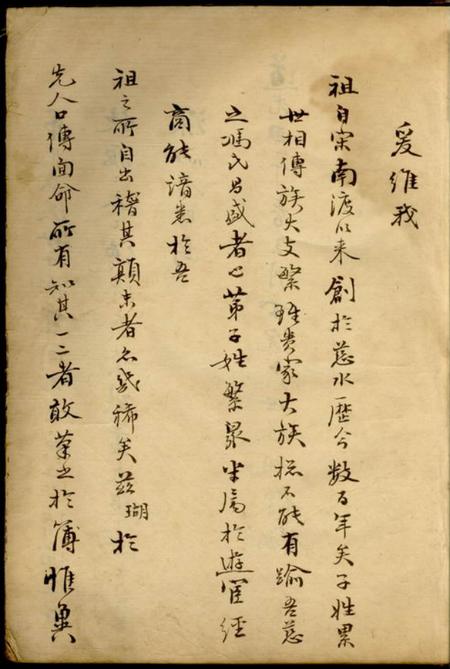 爰維我
祖自宋南渡以來創於慈水歷今數百年矣子姓累
世相傳族大文繁雖貴家大族總不能有踰吾慈
之馮氏昌盛者也第子姓繁衆半屬於遊宦經
商能諳悉於吾
祖之所自出稽其顛末者名幾稀矣茲瑚於
先人口傳面命所有知其一二者敢筆之於簿惟冀